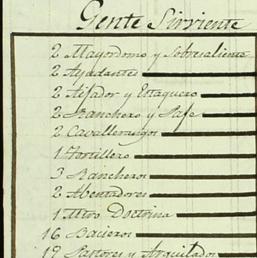 Gente Sirviente
2 Mayordomo y Sobresaliente
2 Ayudantes
2 Atajador y Estaquero
2 Ranchero y Paje
2 Cavallerangos
1 Tortillero
3 Rancheros
2 Abentadores
1 Mtro Doctrina
16 Bacieros
19 Pastores y Arquilados